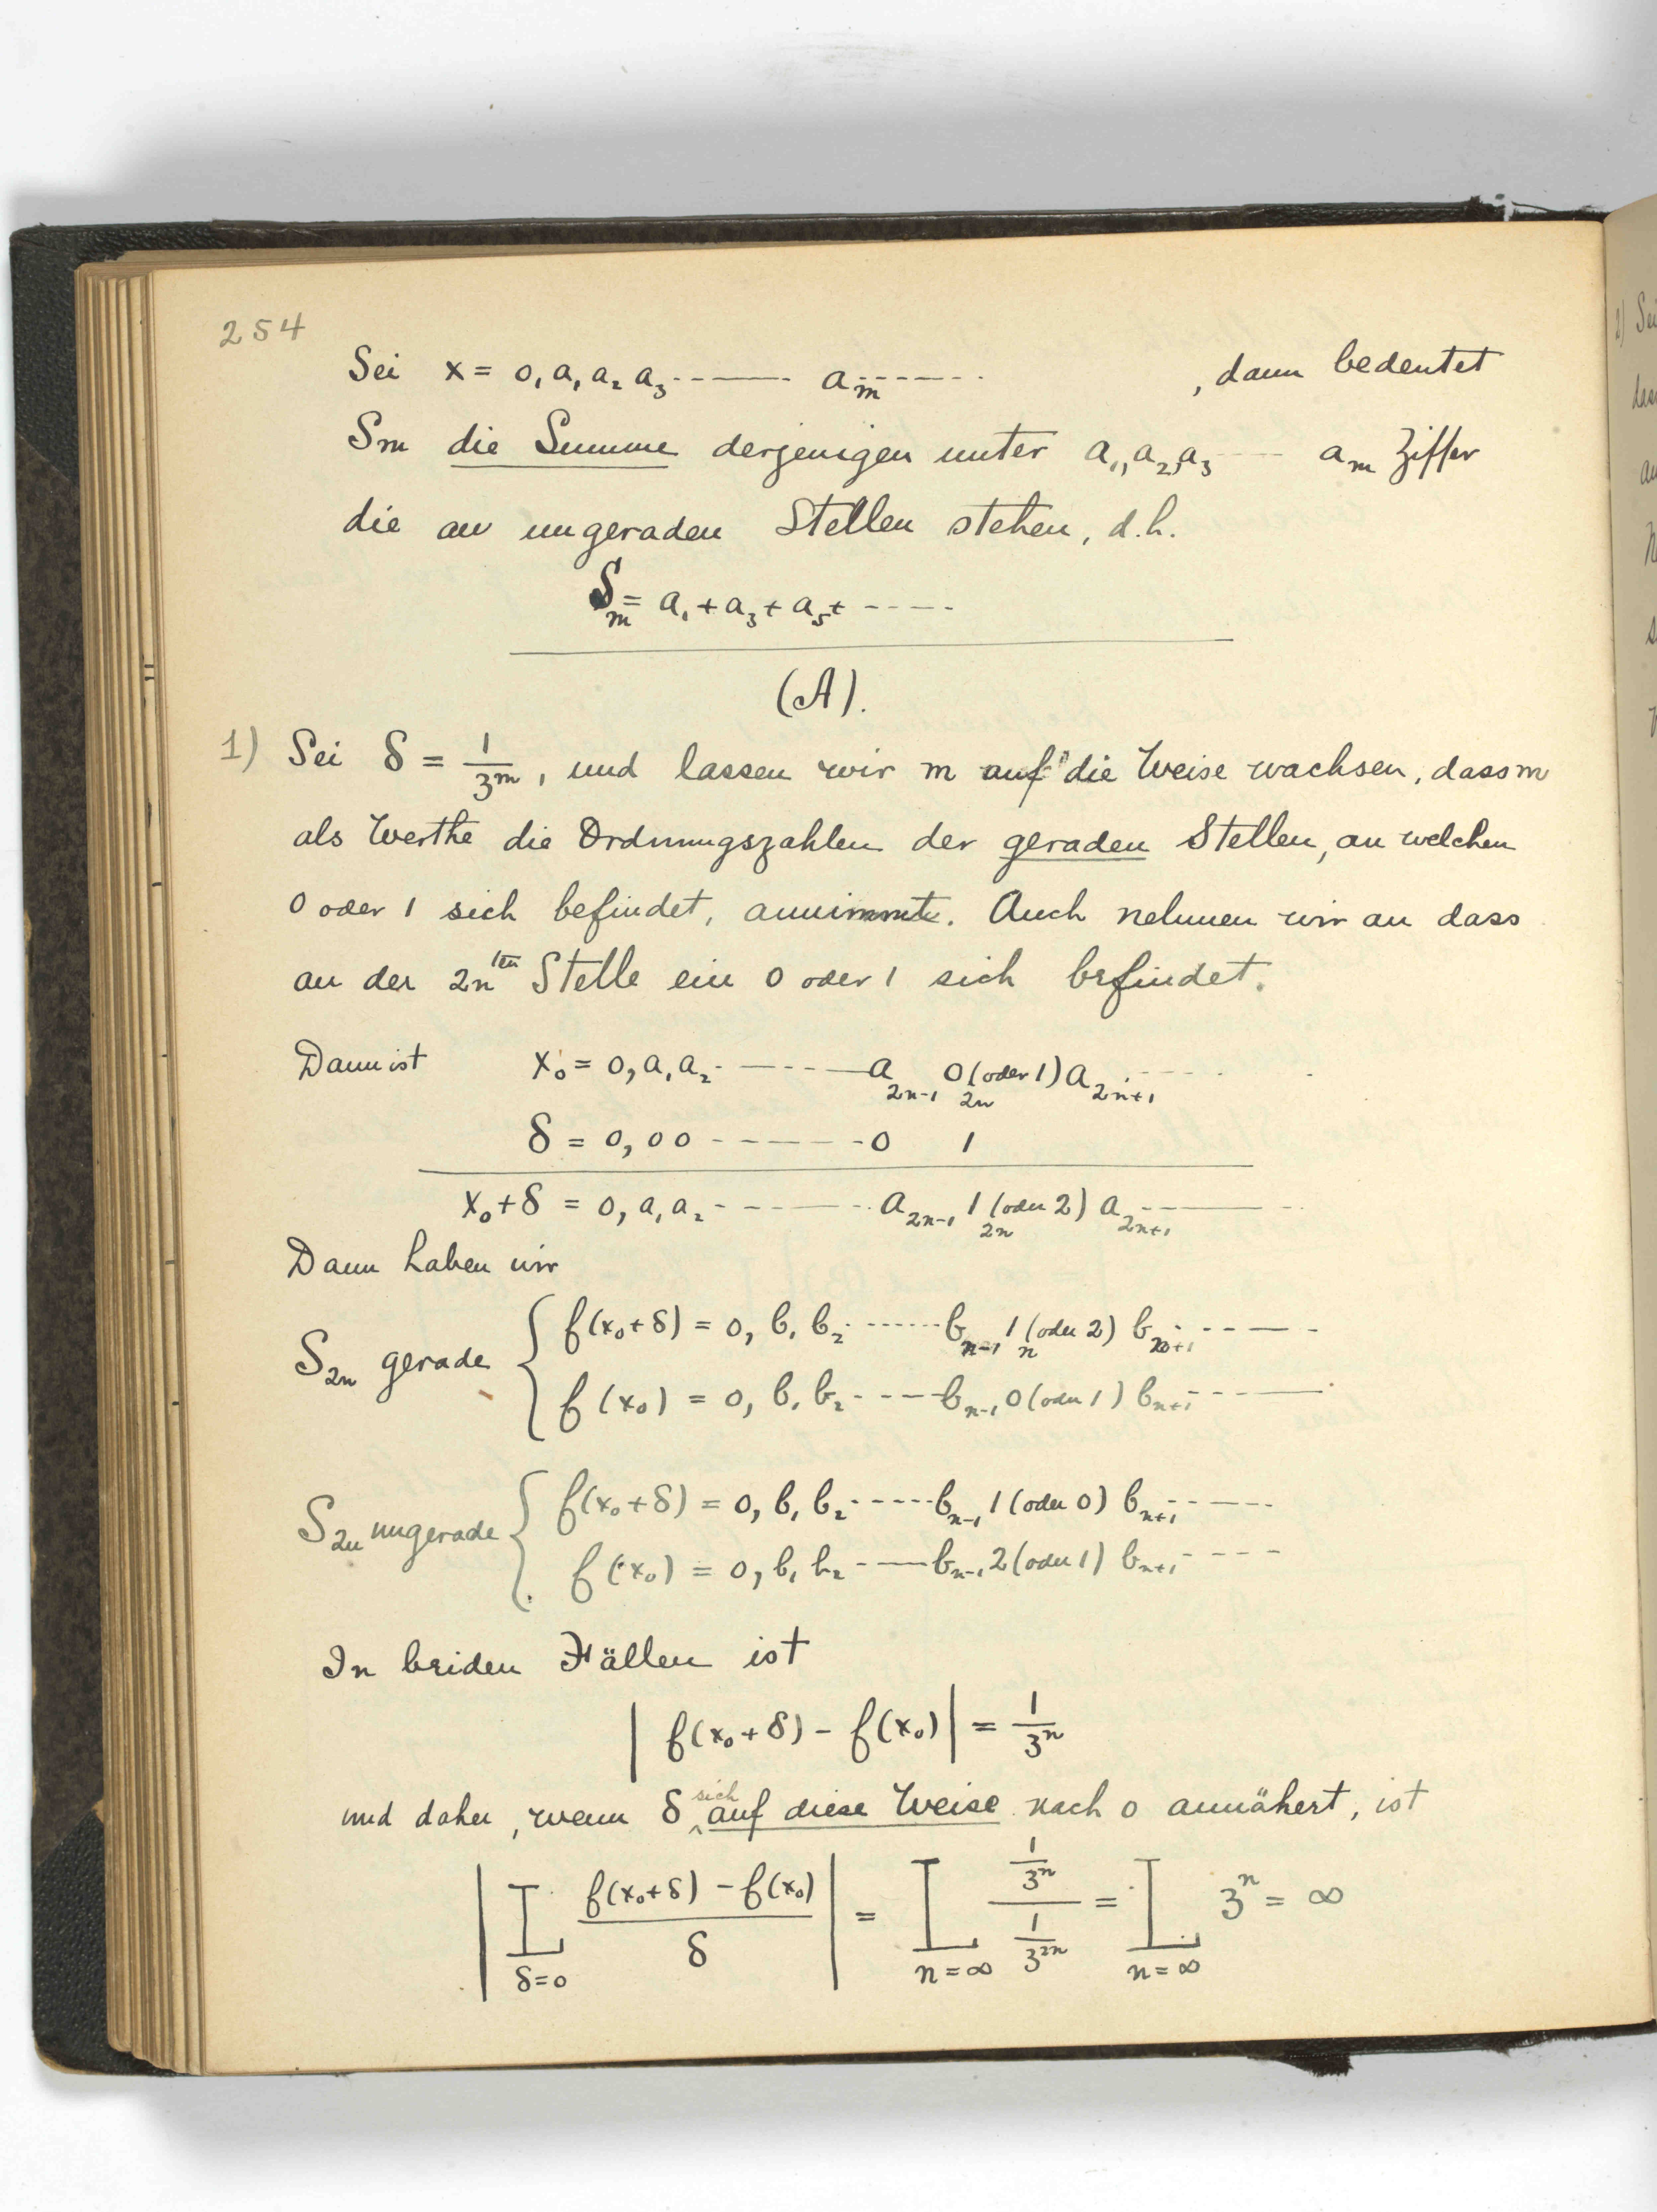 254
Sei x = 0, a₁ a₂ a₃ ------- aₘ ------- , dann bedeutet
Sm die Summe derjenigen unter a₁, a₂, a₃ ---- aₘ Ziffer
die an ungeraden Stellen stehen, d.h.
Sₘ = a₁ + a₃ + a₅ + -----
(A).
1) Sei δ = 1/3ᵐ, und lassen wir m auf die Weise wachsen, dass m
als Werthe die Ordnungszahlen der geraden Stellen, an welchen
0 oder 1 sich befindet, annimmt. Auch nehmen wir an dass
an der 2nᵗᵉⁿ Stelle ein 0 oder 1 sich befindet.
Dann ist x₀ = 0, a₁ a₂ ------- a₂ₙ₋₁ 0 (oder 1) a₂ₙ₊₁ -----
2n
δ = 0, 0 0 ------- 0 1
x₀ + δ = 0, a₁ a₂ ------- a₂ₙ₋₁ 1 (oder 2) a₂ₙ₊₁ -----
2n
Dann haben wir
S₂ₙ gerade { f(x₀ + δ) = 0, b₁ b₂ ------ bₙ₋₁ 1 (oder 2) bₙ₊₁ -----
n
f(x₀) = 0, b₁ b₂ ----- bₙ₋₁ 0 (oder 1) bₙ₊₁ -----
S₂ₙ ungerade { f(x₀ + δ) = 0, b₁ b₂ ----- bₙ₋₁ 1 (oder 0) bₙ₊₁ -----
f(x₀) = 0, b₁ b₂ ----- bₙ₋₁ 2 (oder 1) bₙ₊₁ ----
In beiden Fällen ist
| f(x₀ + δ) - f(x₀) | = 1/3ⁿ
und daher, wenn δ sich auf diese Weise nach 0 annähert, ist
| L_{δ=0} (f(x₀+δ) - f(x₀))/δ | = L_{n=∞} (1/3ⁿ)/(1/3²ⁿ) = L_{n=∞} 3ⁿ = ∞